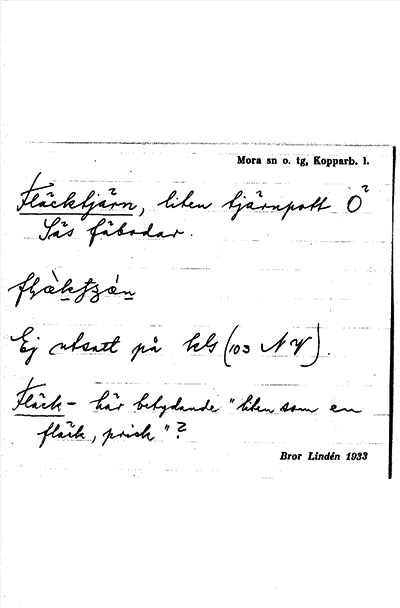 Mora sn o. tg, Kopparb. l.
Fläcktjärn, liten tjärnpott Ö
Säs fäbodar.
Ej utsatt på kls (103 NV).
Fläck- här betydande "liten som en
fläck, prick"?
Bror Lindén 1933